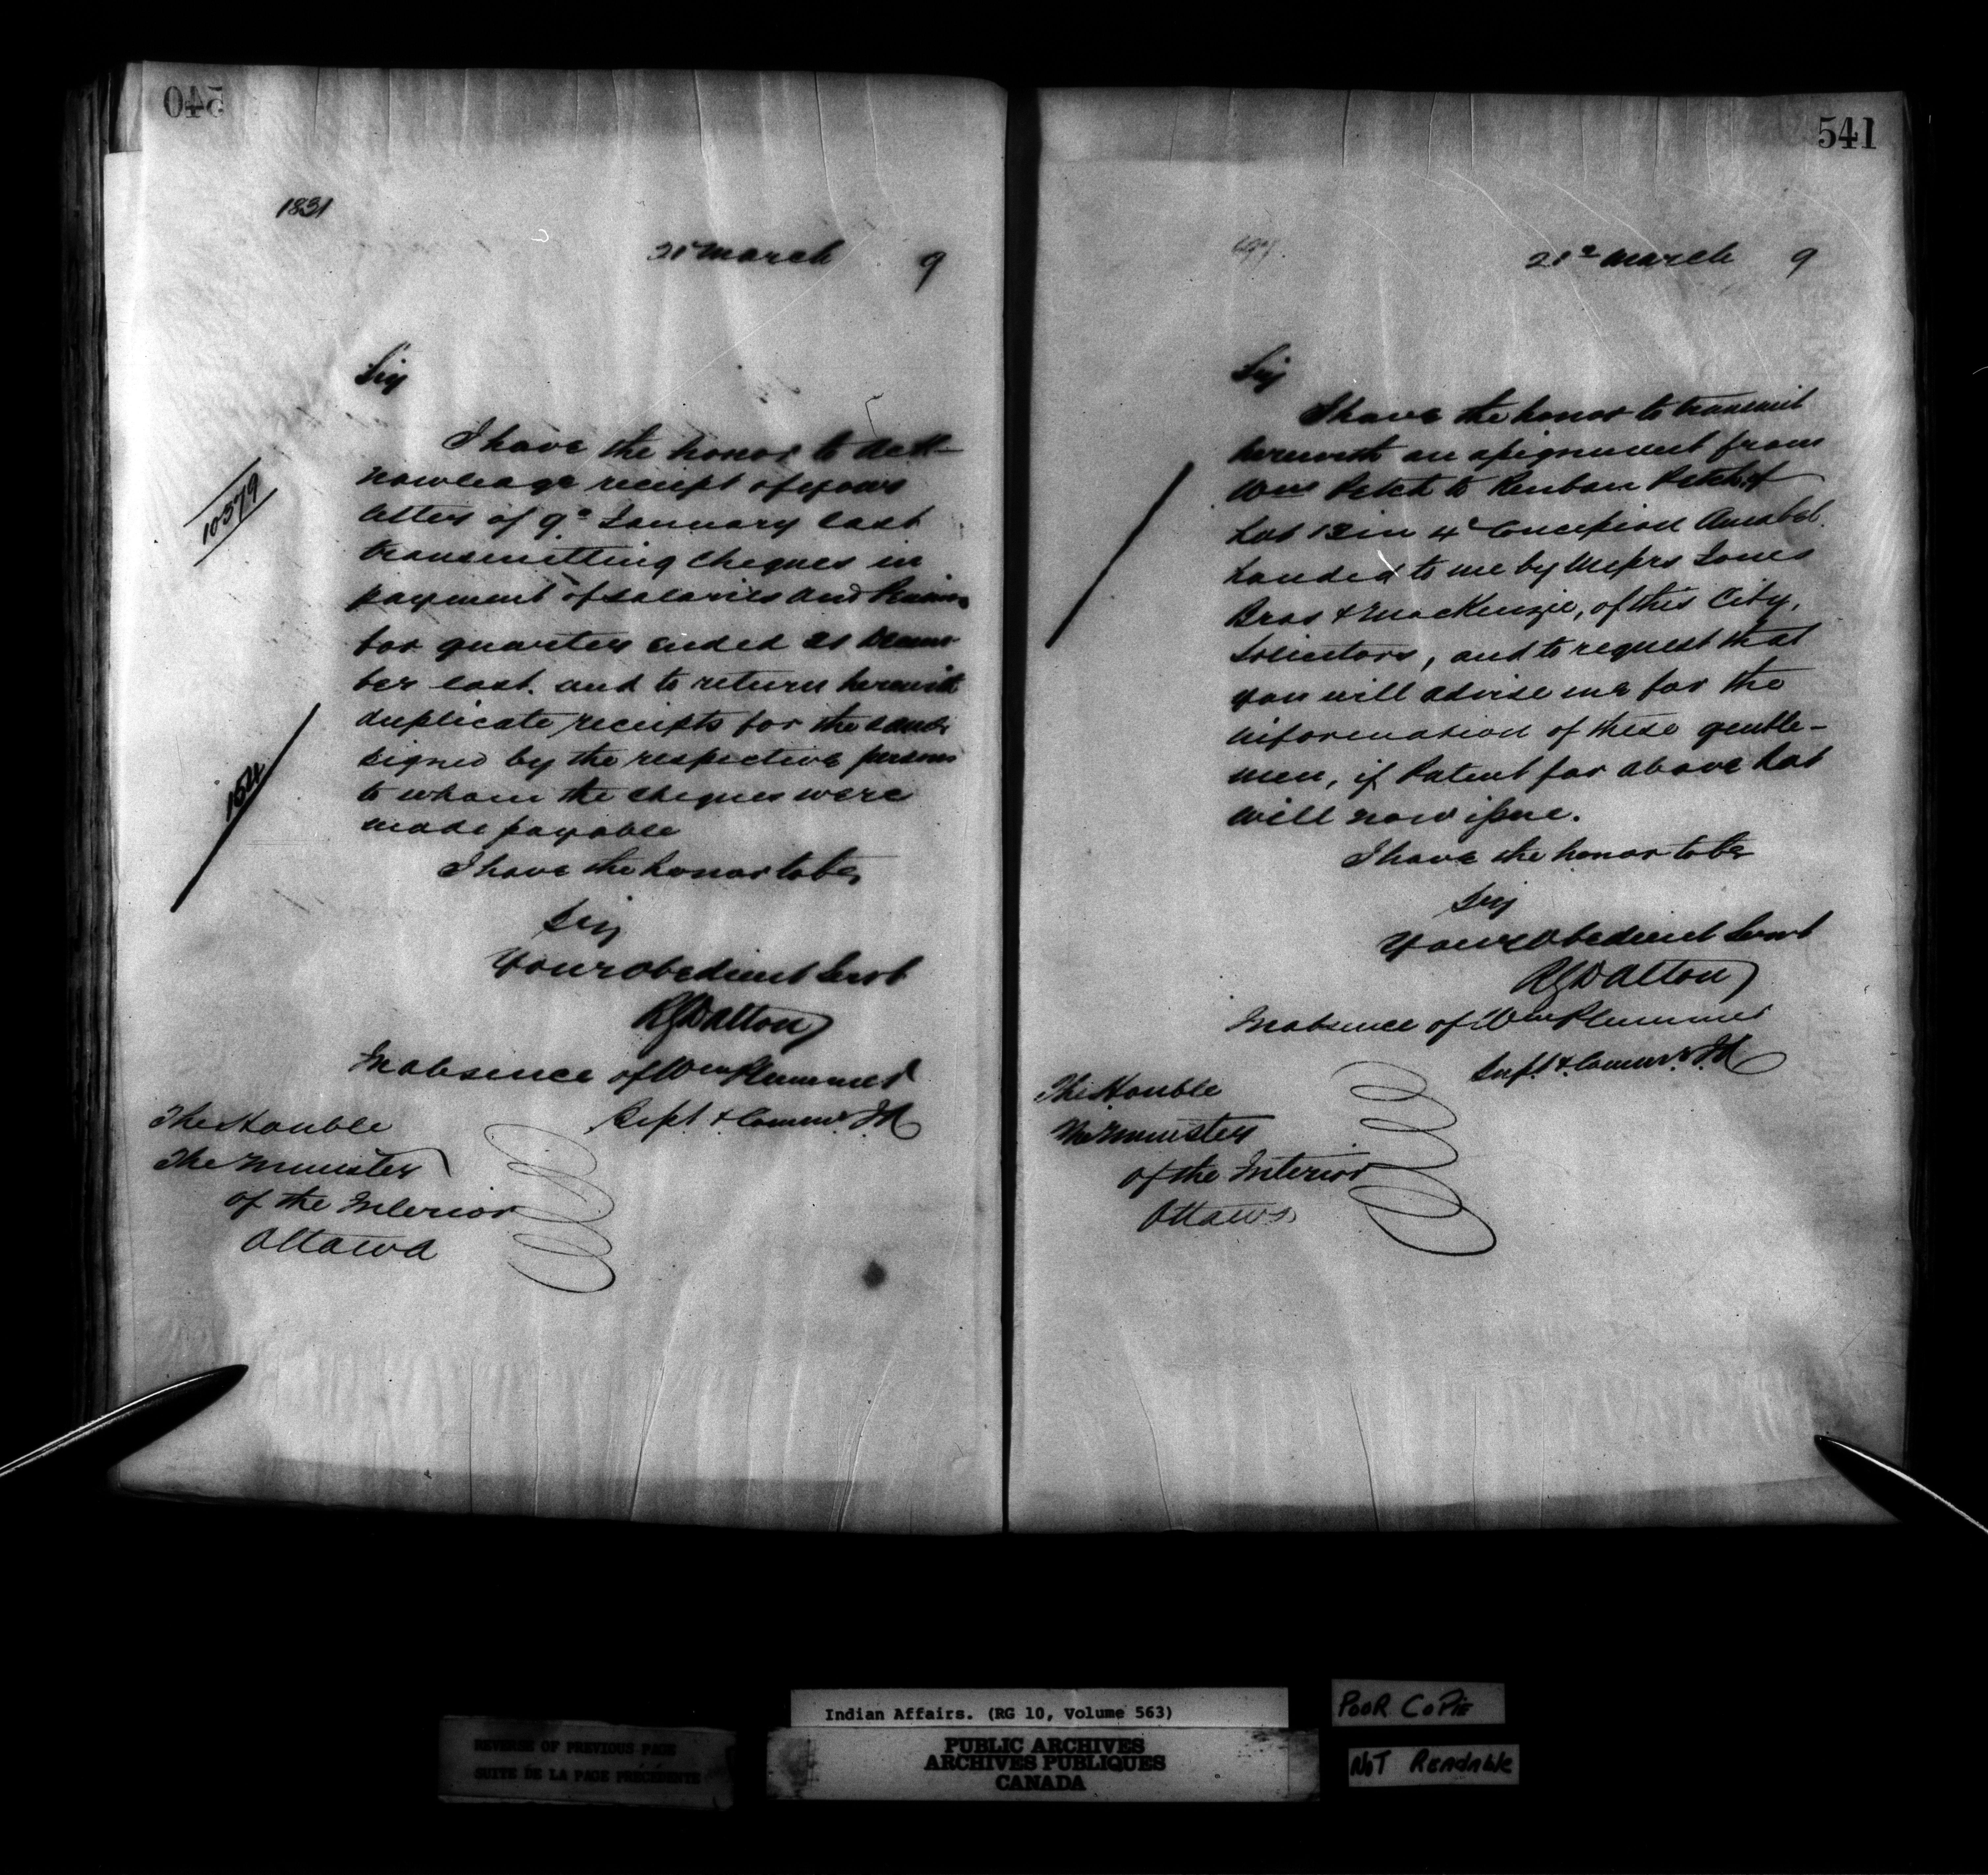 540
1831
21 March 9
Sir
I have the honor to ack-
nowledge receipt of your
letter of 9th January last
transmitting cheques in
payment of salaries and Pensions
for quarter ended 31 Decem
ber last. and to return herewith
duplicate receipts for the same
signed by the respective persons
to whom the cheques were
made payable
I have the honor to be,
Sir
Your obedient Servt
RGDalton
In absence of Wm Plummer
Supt & Commr. IA
The Honble
The Minister
of the Interior
Ottawa
10379
164
541
21st March 9
Sir
I have the honor to transmit
herewith an assignment from
Wm Petch to Reuben Petch of
Lot 13 in 4th Concession Amabel.
handed to me by Messrs Jones
Bros & MacKenzie, of this City,
Solicitors, and to request that
you will advise me for the
information of these gentle-
men, if Patent for above Lot
will now issue.
I have the honor to be
Sir
Your Obedient Servt
RGDalton
In absence of Wm Plummer
Supt. & Commr. IA
The Honble
The Minister
of the Interior
Ottawa
Indian Affairs. (RG 10, Volume 563)
PUBLIC ARCHIVES
ARCHIVES PUBLIQUES
CANADA
REVERSE OF PREVIOUS PAGE
SUITE DE LA PAGE PRÉCÉDENTE
POOR COPIE
NOT READABLE